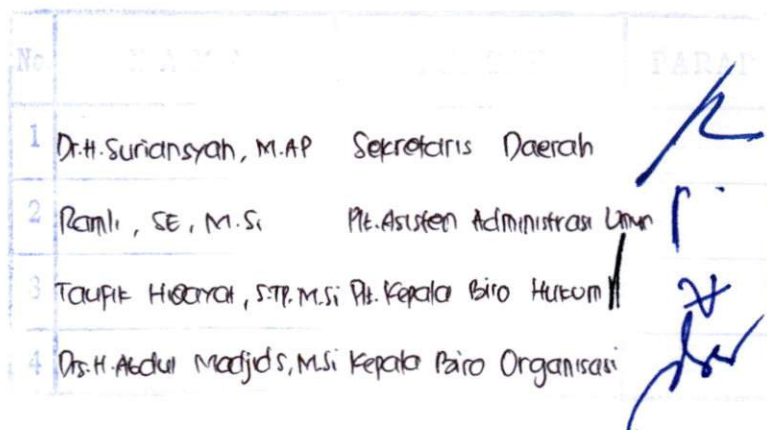 No NAMA PARAF
1 Dr.H. Suriansyah, M.AP Sekretaris Daerah
2 Ramli, SE, M.Si Plt. Asisten Administrasi Umum
3 Taufik Hidayat, S.TP. M.Si Plt. Kepala Biro Hukum
4 Drs. H. Abdul Madjid S, M.Si Kepala Biro Organisasi